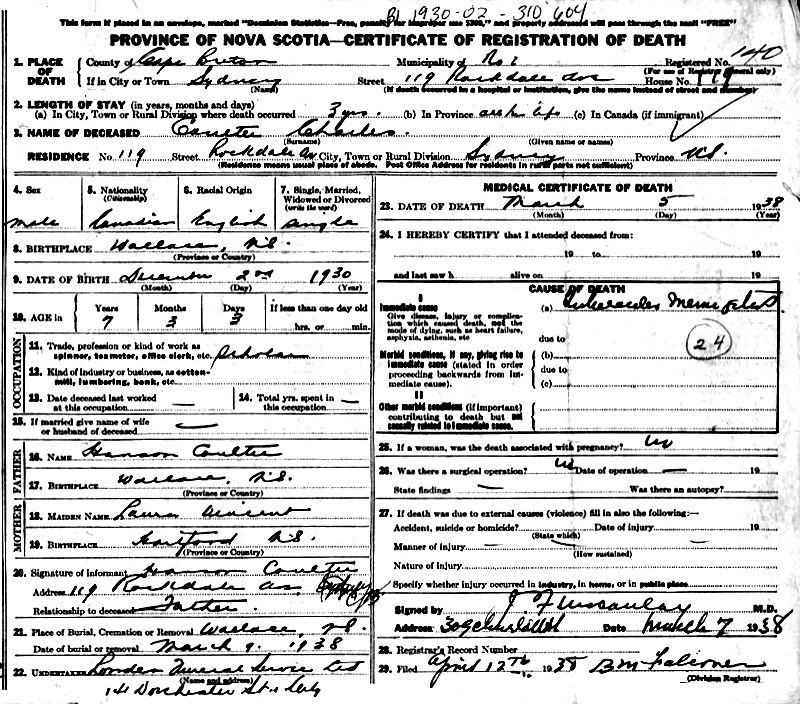 BL 1930-02-310604
This form if placed in an envelope, marked "Dominion Statistics—Free, penalty for improper use $300," and properly addressed will pass through the mail "FREE"
PROVINCE OF NOVA SCOTIA—CERTIFICATE OF REGISTRATION OF DEATH
1. PLACE OF DEATH
County of Cape Breton Municipality of No 1 Registered No. 140
(For use of Registrar General only)
If in City or Town Sydney Street 119 Rockdale Ave House No. 119
(Name) (If death occurred in a hospital or institution, give the name instead of street and number)
2. LENGTH OF STAY (in years, months and days)
(a) In City, Town or Rural Division where death occurred 3 yrs. (b) In Province (c) In Canada (if immigrant)
3. NAME OF DECEASED Coulter Charles
(Surname) (Given name or names)
RESIDENCE No. 119 Street Rockdale Av City, Town or Rural Division Sydney Province N.S.
(Residence means usual place of abode. Post Office Address for residents in rural parts not sufficient)
4. Sex
male
5. Nationality
(Citizenship)
Canadian
6. Racial Origin
English
7. Single, Married, Widowed or Divorced
(write the word)
Single
8. BIRTHPLACE Wallace, N.S.
(Province or Country)
9. DATE OF BIRTH December 2nd 1930
(Month) (Day) (Year)
10. AGE in
Years Months Days If less than one day old
7 3 3 hrs. or min.
OCCUPATION
11. Trade, profession or kind of work as spinner, teamster, office clerk, etc. Scholar
12. Kind of industry or business, as cotton-mill, lumbering, bank, etc.
13. Date deceased last worked at this occupation —
14. Total yrs. spent in this occupation —
15. If married give name of wife or husband of deceased —
FATHER
16. NAME Hanson Coulter
17. BIRTHPLACE Wallace, N.S.
(Province or Country)
MOTHER
18. MAIDEN NAME Laura Vincent
19. BIRTHPLACE Hartford N.S.
(Province or Country)
20. Signature of informant Hanson Coulter
Address 119 Rockdale Av Sydney
Relationship to deceased Father.
21. Place of Burial, Cremation or Removal Wallace, N.S.
Date of burial or removal March 9. 1938
22. UNDERTAKER Funeral Service Ltd
(Name and address)
Dorchester St.
MEDICAL CERTIFICATE OF DEATH
23. DATE OF DEATH March 5 1938
(Month) (Day) (Year)
24. I HEREBY CERTIFY that I attended deceased from:
19 to 19
and last saw h alive on 19
CAUSE OF DEATH
I
Immediate cause
Give disease, injury or complication which caused death, not the mode of dying, such as heart failure, asphyxia, asthenia, etc.
(a) Tubercular Meningitis
due to
24
Morbid conditions, if any, giving rise to immediate cause (stated in order proceeding backwards from immediate cause).
(b)
due to
(c)
II
Other morbid conditions (if important) contributing to death but not causally related to immediate cause.
25. If a woman, was the death associated with pregnancy? no
26. Was there a surgical operation? no Date of operation — 19
State findings — Was there an autopsy?
27. If death was due to external causes (violence) fill in also the following:—
Accident, suicide or homicide? Date of injury 19
(State which)
Manner of injury
(How sustained)
Nature of injury
Specify whether injury occurred in industry, in home, or in public place
Signed by M.D.
Address Date March 7 1938
28. Registrar's Record Number
29. Filed April 12th 1938 B M Falconer
(Division Registrar)